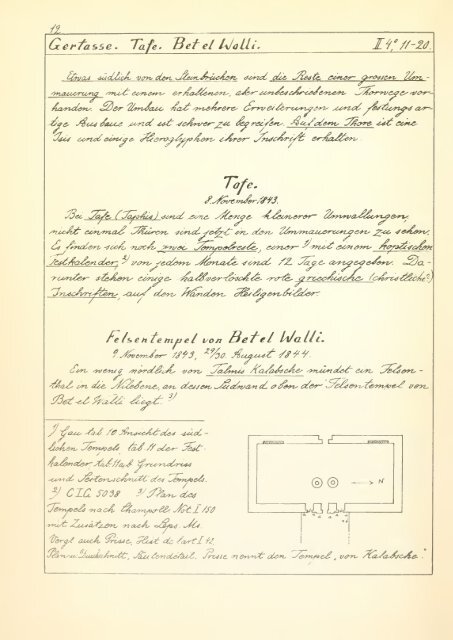 12
Gertasse. Tafe. Bet el Walli. II. 4°, 11-20.
Etwas südlich von den Steinbrüchen sind die Reste einer grossen Um-
mauerung mit einem erhaltenen, aber unbeschriebenen Thorwege vor-
handen. Der Umbau hat mehrere Erweiterungen und festungsar-
tige Ausbaue und ist schwer zu begreifen. Auf dem Thore ist eine
Isis und einige Hieroglyphen ihrer Inschrift erhalten.
Tafe.
8. November 1843.
Bei Tafe (Taphis) sind eine Menge kleinerer Umwallungen,
nicht einmal Thüren sind jetzt in den Ummauerungen zu sehen.
Es finden sich noch zwei Tempelreste, einer 1) mit einem koptischen
Festkalender, 2) von jedem Monate sind 12 Tage angegeben. Da-
runter stehen einige halbverlöschte rote griechische (christliche?)
Inschriften, auf den Wänden Heiligenbilder.
Felsentempel von Bet el Walli.
9. November 1843, 29/30. August 1844.
Ein wenig nördlich von Talmis Kalabsche mündet ein Felsen-
thal in die Nilebene, an dessen Südwand oben der Felsentempel von
Bet el Walli liegt. 3)
1) Gau tab. 10 Ansicht des süd-
lichen Tempels tab. 11 der Fest-
kalender tab. 11 a.b Grundriss
und Seitenschnitt des Tempels.
2) C.I.G. 5098 3) Plan des
Tempels nach Champoll. Not. I 150
mit Zusätzen nach Leps. Ms.
Vergl. auch Prisse, Hist. de l'art I 43.
Plan u. Durchschnitt, Säulendetail. Prisse nennt den Tempel „von Kalabsche".
N